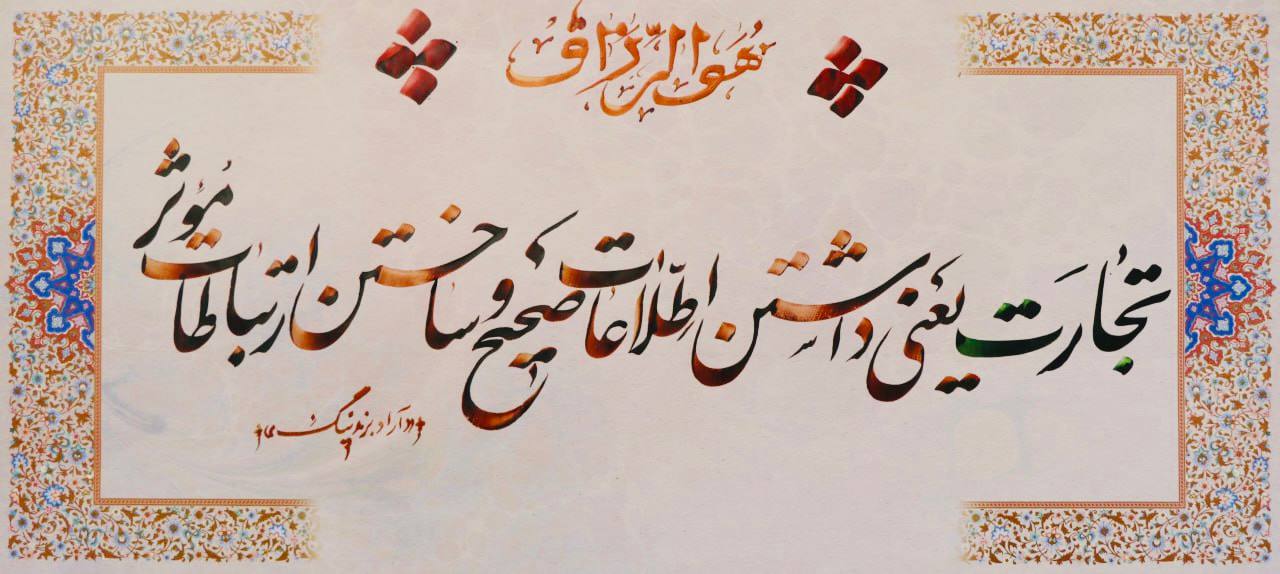 هُوَ الرَّزّاق
تجارَت یَعنی داشتن اطّلاعات صَحیح و ساختن ارتباطات مُؤثر
«آراد برندینگ»